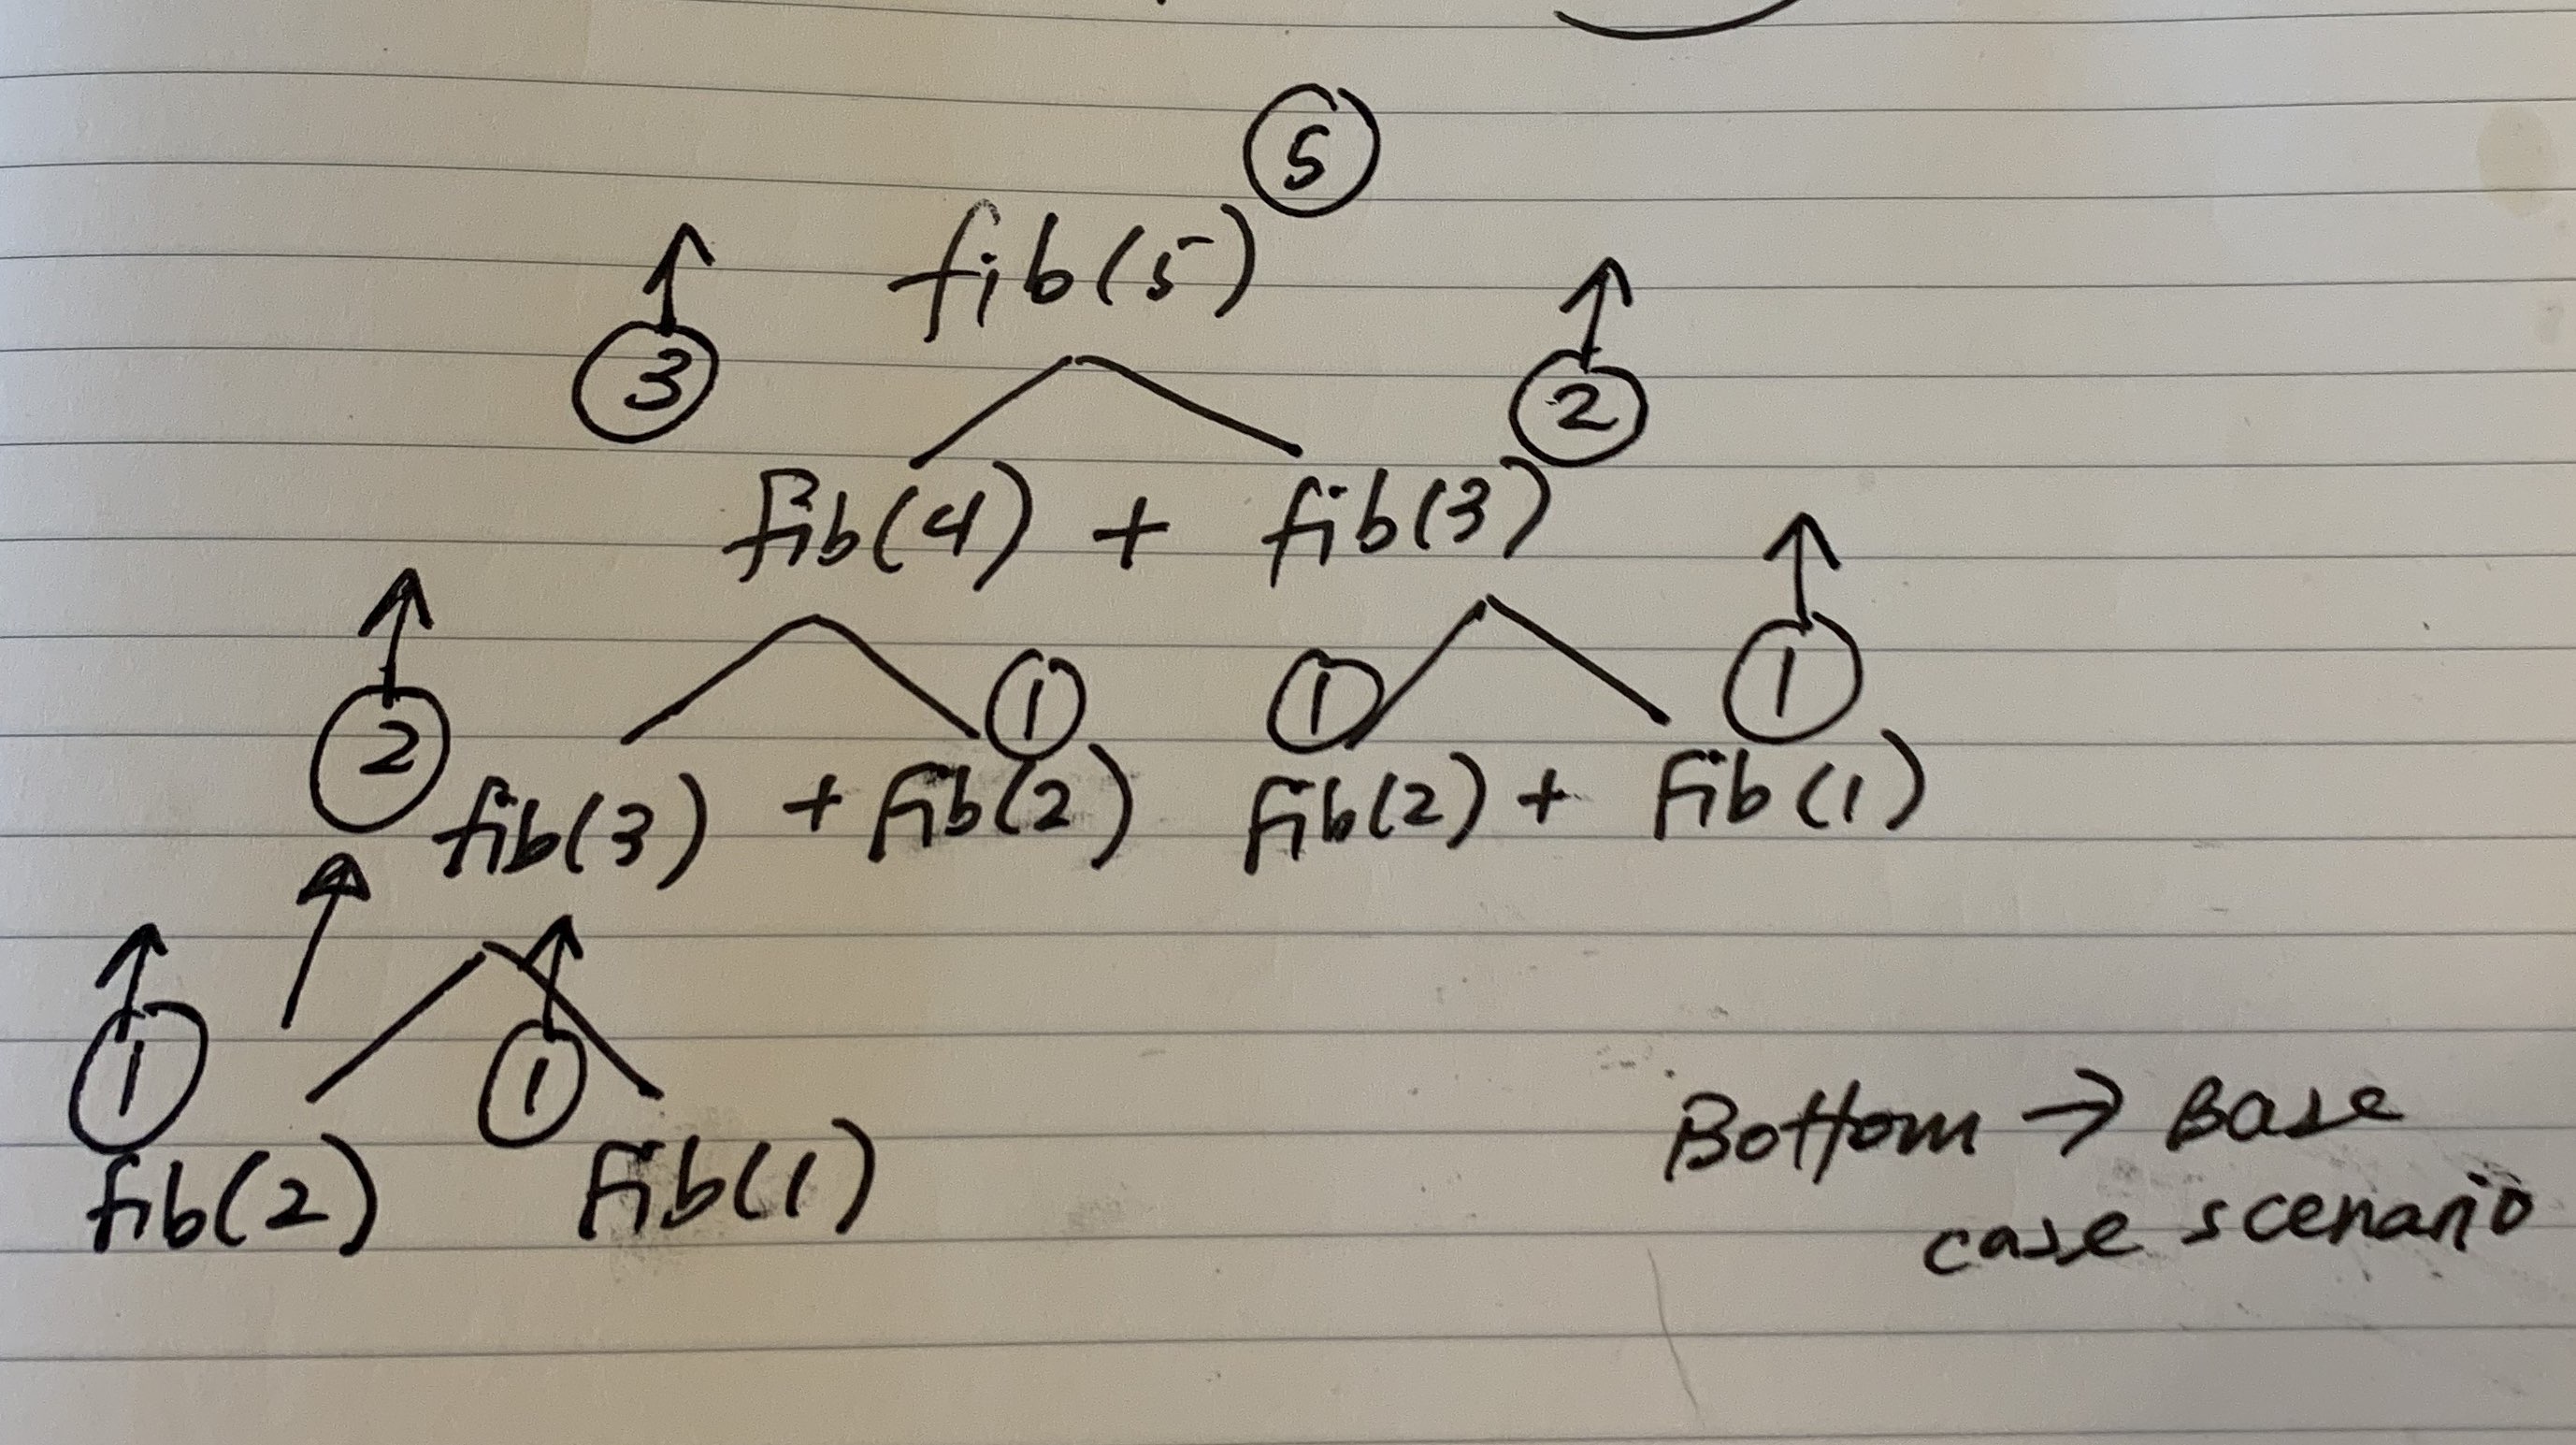 5
fib(5)
3 2
fib(4) + fib(3)
2 1 1 1
fib(3) + fib(2) fib(2) + fib(1)
1 1
fib(2) fib(1)
Bottom → Base
case scenario